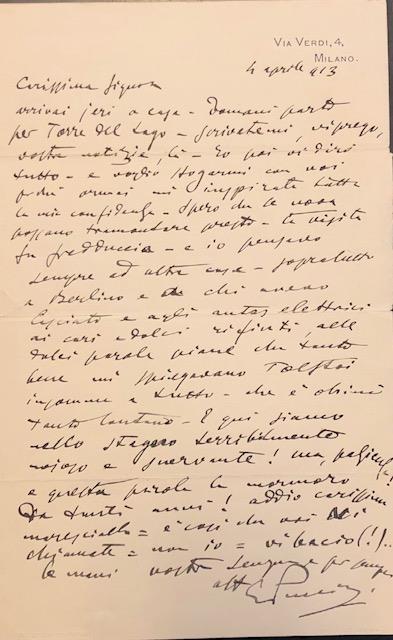 VIA VERDI, 4,
MILANO.
4 aprile 913
Carissima Signora
arrivai jeri a casa - Domani parto
per Torre del Lago - scrivetemi, vi prego,
vostre notizie, là - Io poi vi dirò
tutto - e voglio sfogarmi con voi
perchè ormai mi inspirate tutta
la mia confidenza - Spero che le
possano tramontare presto - la visita
fu fredduccia - e io pensavo
sempre ad altre cose - sopratutto
a Berlino e a chi avevo
lasciato e agli autos elettrici
ai cari e dolci rifiuti alle
dolci parole piane che tanto
bene mi spiegavano Tolstoi
insomma a tutto - che è ohimè
tanto lontano - E qui siamo
nello stesso terribilmente
noioso e snervante! ma, pazienza!
e questa parola la mormoro
da tanti anni! addio carissimo
maresciallo = è così che voi vi
chiamate = non io = vi bacio (!)..
le mani vostro sempre e per sempre
aff
GPuccini